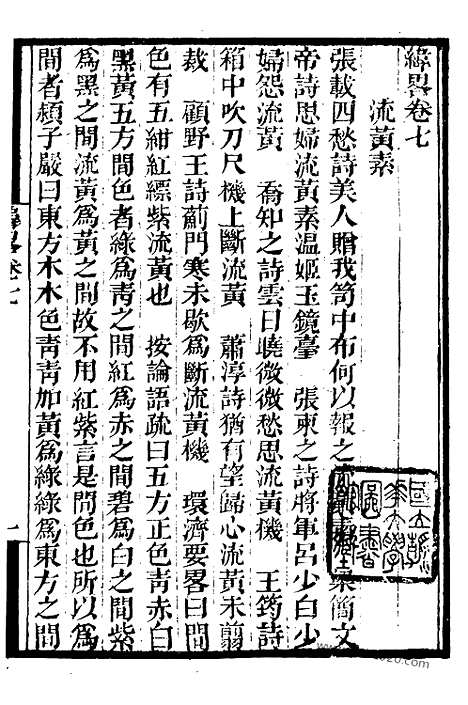 緯畧卷七
流黃素
張載四愁詩美人贈我笥中布何以報之 簡文
帝詩思婦流黃素溫姬玉鏡臺　張柬之詩將軍呂少白少
婦怨流黃　喬知之詩雲日曉微微愁思流黃機　王筠詩
箱中吹刀尺機上斷流黃　蕭淳詩猶有望歸心流黃未翦
裁　顧野王詩薊門寒未歇爲斷流黃機　環濟要畧曰間
色有五紺紅縹紫流黃也　按論語疏曰五方正色靑赤白
黑黃五方間色者綠爲靑之間紅爲赤之間碧爲白之間紫
爲黑之間流黃爲黃之間故不用紅紫言是間色也所以爲
間者頛子嚴曰東方木木色靑靑加黃爲綠綠爲東方之間
緯畧卷七
一